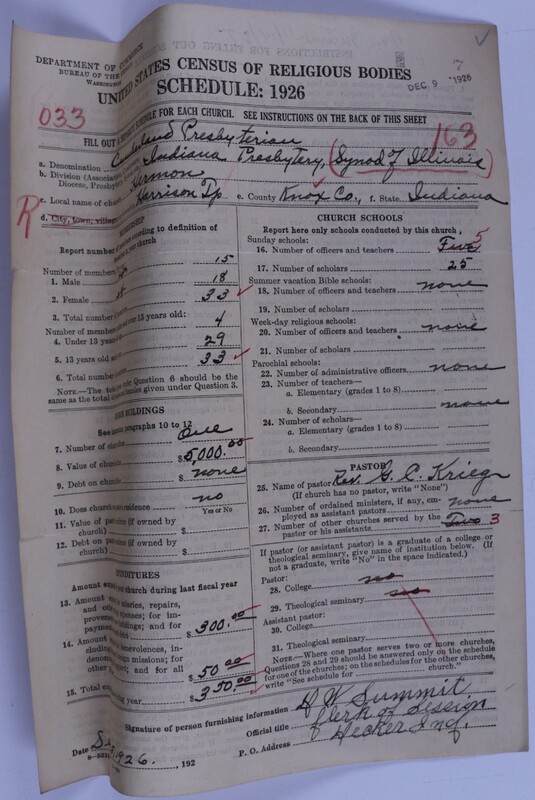 DEPARTMENT OF
BUREAU OF THE
WASHINGTON
7
DEC 9 1926
UNITED STATES CENSUS OF RELIGIOUS BODIES
SCHEDULE: 1926
033
163
SCHEDULE FOR EACH CHURCH. SEE INSTRUCTIONS ON THE BACK OF THIS SHEET
FILL OUT A
a. Denomination Presbyterian
b. Division (Associa Indiana Presbytery, (Synod of Illinois)
Diocese, Presby
c. Local name of chu Hermon
R
d. City, town, villag Harrison Tp e. County Knox Co., f. State Indiana
Report number of according to definition of
in your church
Number of members
1. Male 15
2. Female 18
3. Total number 33
Number of membe over 13 years old:
4. Under 13 years 4
5. 13 years old 29
6. Total number 33
NOTE.—The to under Question 6 should be the
same as the total given under Question 3.
BUILDINGS
See paragraphs 10 to 12
7. Number of chur One
8. Value of chur $5,000.00
9. Debt on chur none
10. Does church residence no
Yes or No
11. Value of pa (if owned by
church) $
12. Debt on pa (if owned by
church) $
EXPENDITURES
Amount church during last fiscal year
13. Amount salaries, repairs,
and other expenses; for im-
provements buildings; and for
payment debt $300.00
14. Amount benevolences, in-
cluding foreign missions; for
denom and for all
other $50.00
15. Total during year $350.00
CHURCH SCHOOLS
Report here only schools conducted by this church
Sunday schools:
16. Number of officers and teachers Five 5
17. Number of scholars 25
Summer vacation Bible schools:
18. Number of officers and teachers none
19. Number of scholars
Week-day religious schools:
20. Number of officers and teachers none
21. Number of scholars
Parochial schools:
22. Number of administrative officers none
23. Number of teachers—
a. Elementary (grades 1 to 8)
b. Secondary none
24. Number of scholars—
a. Elementary (grades 1 to 8)
b. Secondary
PASTOR
25. Name of pastor Rev. G. C. Kriege
(If church has no pastor, write "None")
26. Number of ordained ministers, if any, em-
ployed as assistant pastors none
27. Number of other churches served by the
pastor or his assistants Two 3
If pastor (or assistant pastor) is a graduate of a college or
theological seminary, give name of institution below. (If
not a graduate, write "No" in the space indicated.)
Pastor:
28. College no
29. Theological seminary no
Assistant pastor:
30. College
31. Theological seminary
NOTE.—Where one pastor serves two or more churches,
Questions 28 and 29 should be answered only on the schedule
for one of the churches; on the schedules for the other churches,
write "See schedule for church."
Signature of person furnishing information D W Summit
Official title Clerk of Session
P. O. Address Decker Ind.
Date 1926, 192